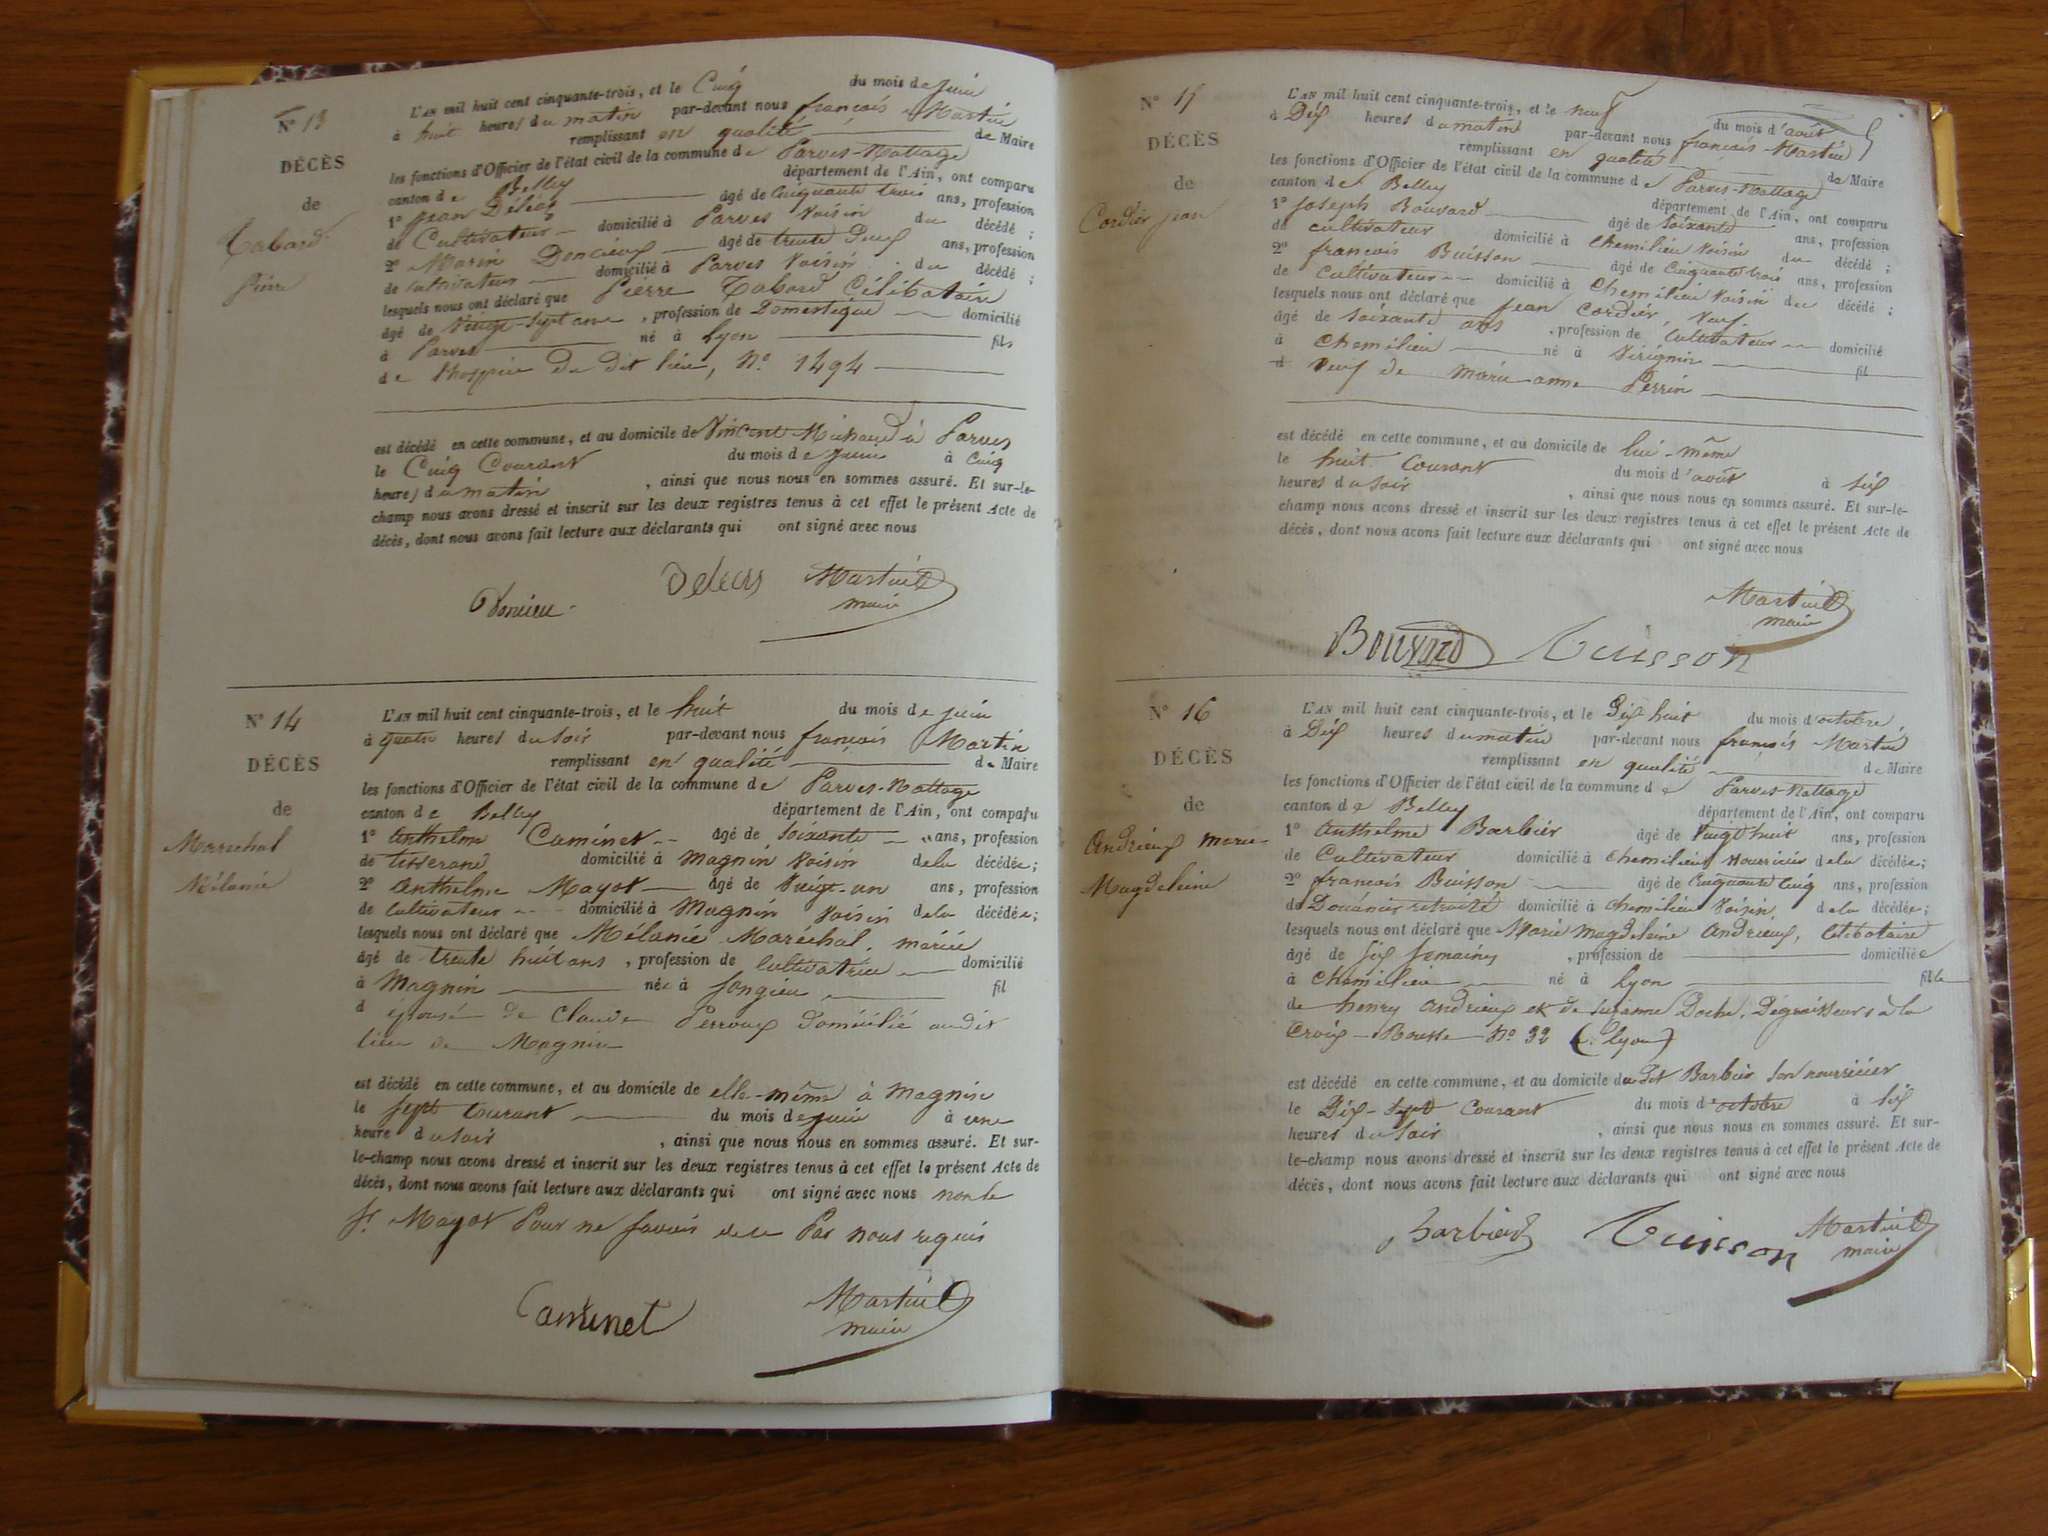 N° 13
DÉCÈS
de
Tabard
Pierre
L'AN mil huit cent cinquante-trois, et le Cinq du mois de juin
à huit heures du matin par-devant nous françois Martin
remplissant en qualité de Maire
les fonctions d'Officier de l'état civil de la commune de Parves-Nattage
canton de Belley département de l'Ain, ont comparu
1° Jean âgé de Cinquante trois ans, profession
de Cultivateur domicilié à Parves Voisin du décédé ;
2° Marin Doncieux âgé de trente Deux ans, profession
de Cultivateur domicilié à Parves Voisin du décédé ;
lesquels nous ont déclaré que Pierre Tabard Célibataire
âgé de Vingt-Sept ans , profession de Domestique domicilié
à Parves né à Lyon fils
de l'hospice du dit lieu, N° 1494
est décédé en cette commune, et au domicile de Vincent Michaud à Parves
le Cinq Courant du mois de juin à Cinq
heures du matin , ainsi que nous nous en sommes assuré. Et sur-le-
champ nous avons dressé et inscrit sur les deux registres tenus à cet effet le présent Acte de
décès, dont nous avons fait lecture aux déclarants qui ont signé avec nous
Martin
maire
N° 14
DÉCÈS
de
Maréchal
Mélanie
L'AN mil huit cent cinquante-trois, et le huit du mois de juin
à quatre heures du soir par-devant nous françois Martin
remplissant en qualité de Maire
les fonctions d'Officier de l'état civil de la commune de Parves-Nattage
canton de Belley département de l'Ain, ont comparu
1° Anthelme Caminet âgé de Soixante ans, profession
de tisserand domicilié à Magnin Voisin dela décédée;
2° Anthelme Mayot âgé de Vingt-un ans, profession
de Cultivateur domicilié à Magnin Voisin dela décédée;
lesquels nous ont déclaré que Mélanie Maréchal, mariée
âgé de trente huit ans , profession de Cultivatrice domicilié
à Magnin née à Jongieu fil
d épouse de Claude Perroux domicilié audit
lieu de Magnin
est décédé en cette commune, et au domicile de elle-même à Magnin
le Sept Courant du mois de juin à une
heure du soir , ainsi que nous nous en sommes assuré. Et sur-
le-champ nous avons dressé et inscrit sur les deux registres tenus à cet effet le présent Acte de
décès, dont nous avons fait lecture aux déclarants qui ont signé avec nous non le
Sr Mayot Pour ne savoir de ce Par nous requis
Caminet
Martin
maire
N° 15
DÉCÈS
de
Cordier jean
L'AN mil huit cent cinquante-trois, et le neuf du mois d'août
à Dix heures du matin par-devant nous françois Martin
remplissant en qualité de Maire
les fonctions d'Officier de l'état civil de la commune de Parves-Nattage
canton de Belley département de l'Ain, ont comparu
1° Joseph Bouvard âgé de Soixante ans, profession
de cultivateur domicilié à Chemilieu Voisin du décédé ;
2° françois Buisson âgé de Cinquante trois ans, profession
de Cultivateur domicilié à Chemilieu Voisin du décédé ;
lesquels nous ont déclaré que Jean Cordier, Veuf
âgé de Soixante ans , profession de Cultivateur domicilié
à Chemilieu né à Virignin fil
d Veuf de Marie anne Perrin
est décédé en cette commune, et au domicile de lui-même
le huit Courant du mois d'août à Six
heures du soir , ainsi que nous nous en sommes assuré. Et sur-le-
champ nous avons dressé et inscrit sur les deux registres tenus à cet effet le présent Acte de
décès, dont nous avons fait lecture aux déclarants qui ont signé avec nous
Martin
maire
Bouvard Buisson
N° 16
DÉCÈS
de
Andrieux Marie-
Magdeleine
L'AN mil huit cent cinquante-trois, et le Dix huit du mois d'octobre
à Dix heures du matin par-devant nous françois Martin
remplissant en qualité de Maire
les fonctions d'Officier de l'état civil de la commune de Parves-Nattage
canton de Belley département de l'Ain, ont comparu
1° Anthelme Barbier âgé de Vingt huit ans, profession
de Cultivateur domicilié à Chemilieu Nourricier dela décédée;
2° françois Buisson âgé de Cinquante Cinq ans, profession
de Douanier retraité domicilié à Chemilieu Voisin dela décédée;
lesquels nous ont déclaré que Marie Magdeleine Andrieux, Célibataire
âgé de Six Semaines , profession de domiciliée
à Chemilieu né à Lyon fille
de henry Andrieux et de Suzanne Doche, Dégraisseurs à la
Croix-Rousse N° 32 (Lyon)
est décédé en cette commune, et au domicile du dit Barbier son nourricier
le Dix-Sept Courant du mois d'octobre à Six
heures du soir , ainsi que nous nous en sommes assuré. Et sur-
le-champ nous avons dressé et inscrit sur les deux registres tenus à cet effet le présent Acte de
décès, dont nous avons fait lecture aux déclarants qui ont signé avec nous
Barbier Buisson Martin
maire